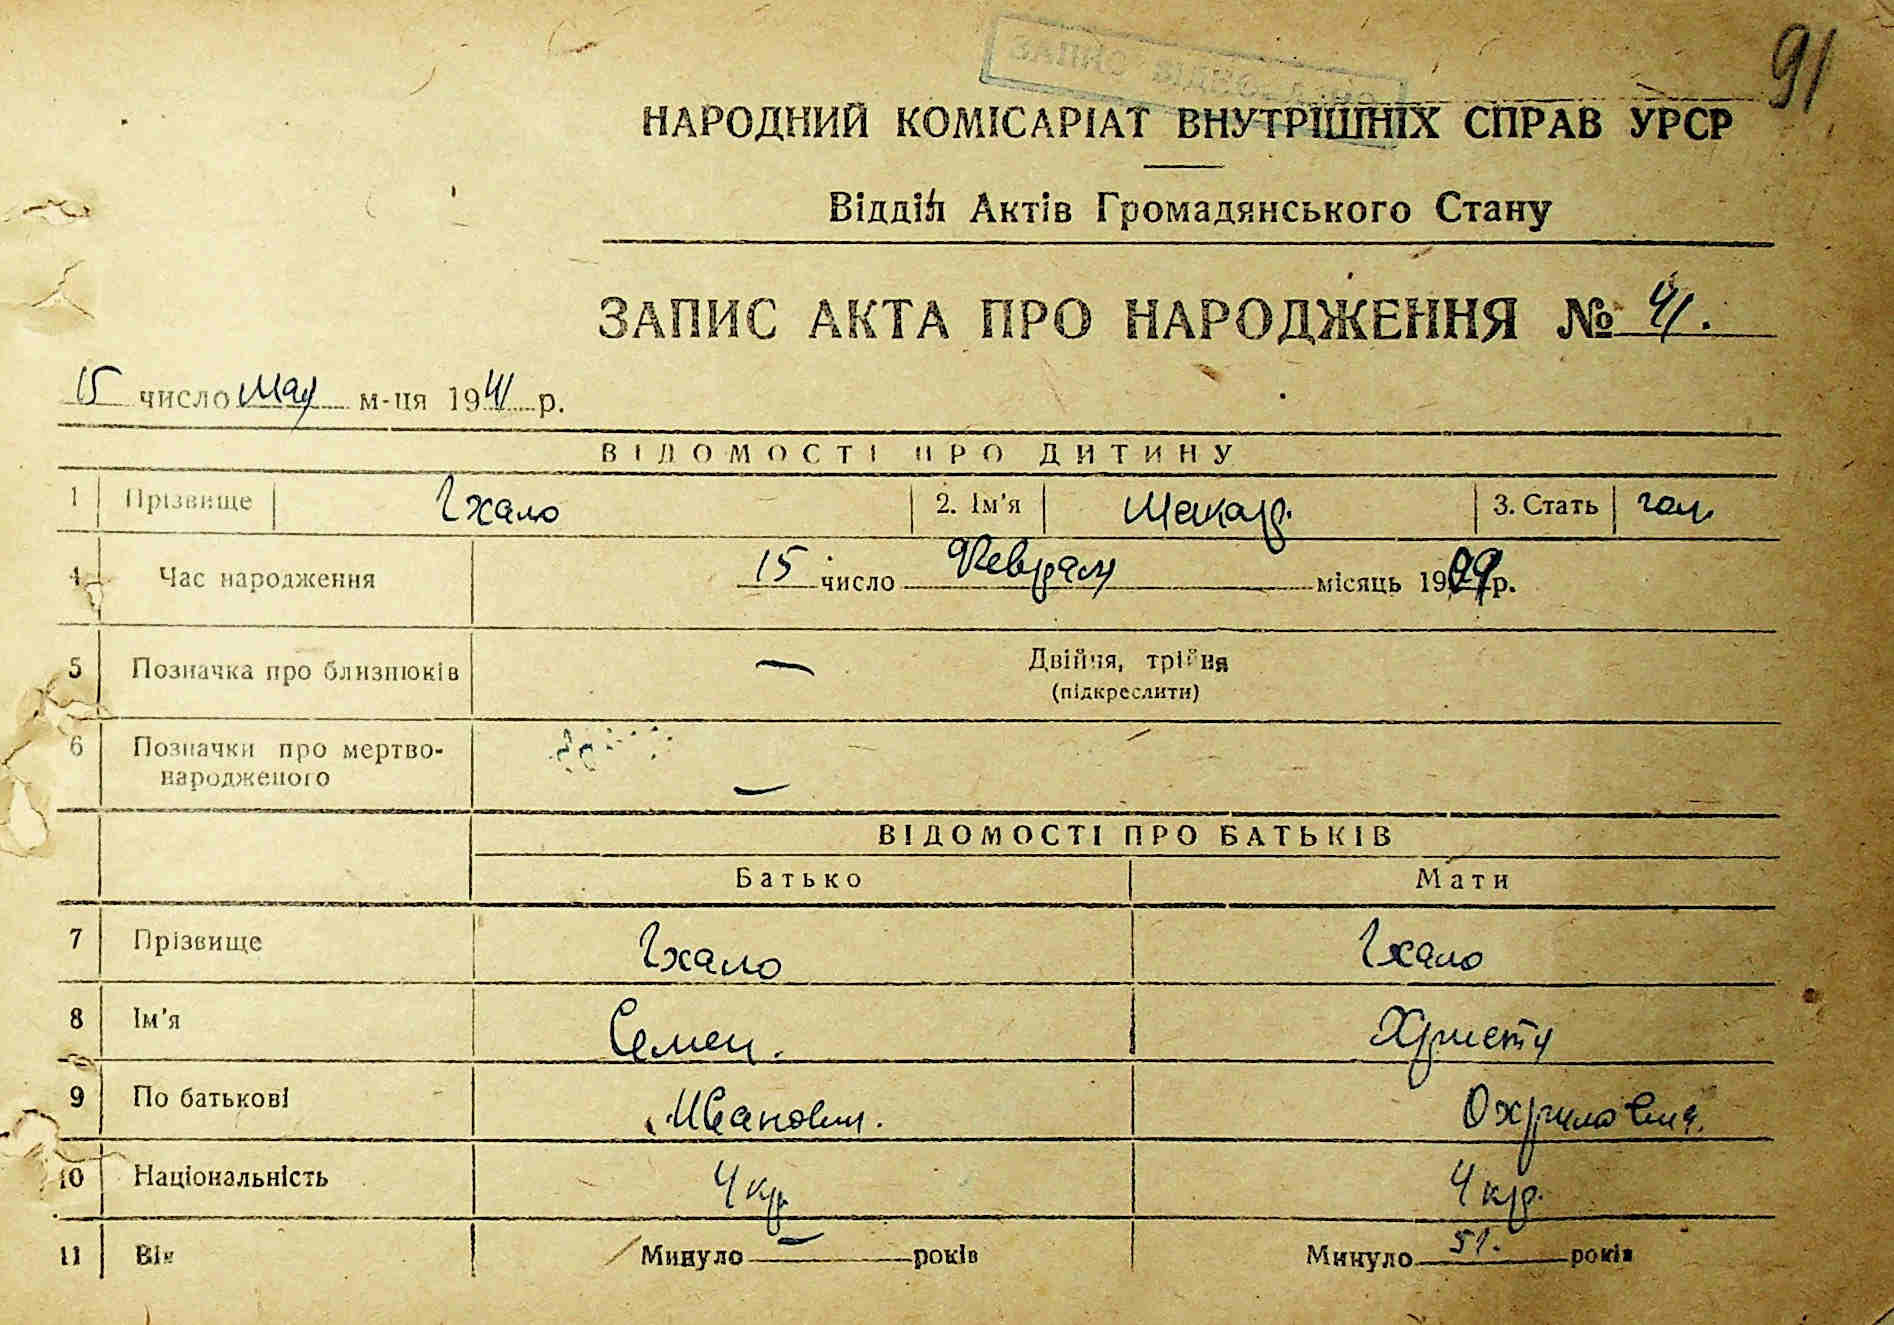 91
ЗАПИС ВІДНОВЛЕНО
НАРОДНИЙ КОМІСАРІАТ ВНУТРІШНІХ СПРАВ УРСР
Відділ Актів Громадянського Стану
ЗАПИС АКТА ПРО НАРОДЖЕННЯ № 41.
15 число мая м-ця 1941 р.
ВІДОМОСТІ ПРО ДИТИНУ
1 Прізвище Чхало 2. Ім'я Макар. 3. Стать чол.
4 Час народження 15 число Февраля місяць 1909 р.
5 Позначка про близнюків — Двійня, трійня
(підкреслити)
6 Позначки про мертво-
народженого —
ВІДОМОСТІ ПРО БАТЬКІВ
Батько Мати
7 Прізвище Чхало Чхало
8 Ім'я Семен. Христя
9 По батькові Иванович.
10 Національність Укр. Укр.
11 Вік Минуло — років Минуло 51. років